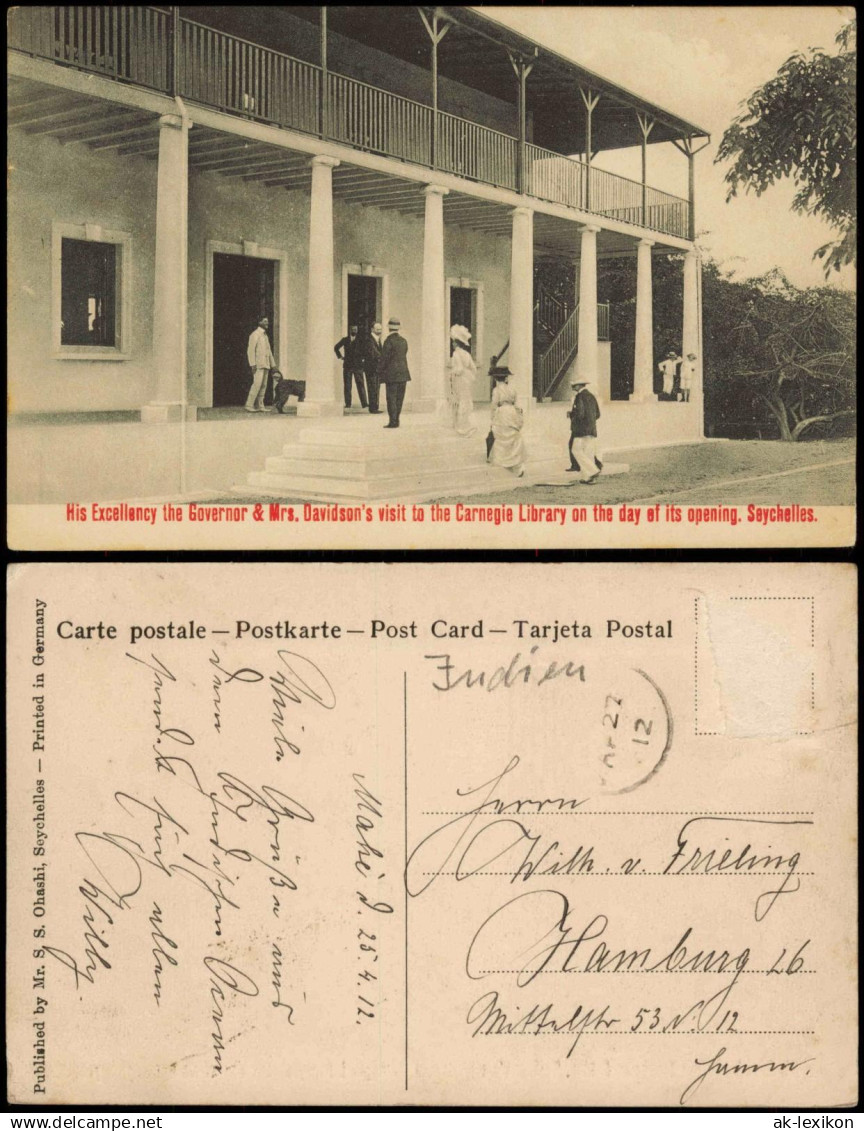 His Excellency the Governor & Mrs. Davidson's visit to the Carnegie Library on the day of its opening. Seychelles.
Carte postale — Postkarte — Post Card — Tarjeta Postal
Published by Mr. S. S. Ohashi, Seychelles — Printed in Germany
Indien
27
12
Mahé d. 25.4.12.
Viele Grüße aus
dem Indischen Ocean
sendet
Willy.
Herrn
Wilh. v. Frieling
Hamburg 26
Mittelstr 53
Hamm.
ak-lexikon